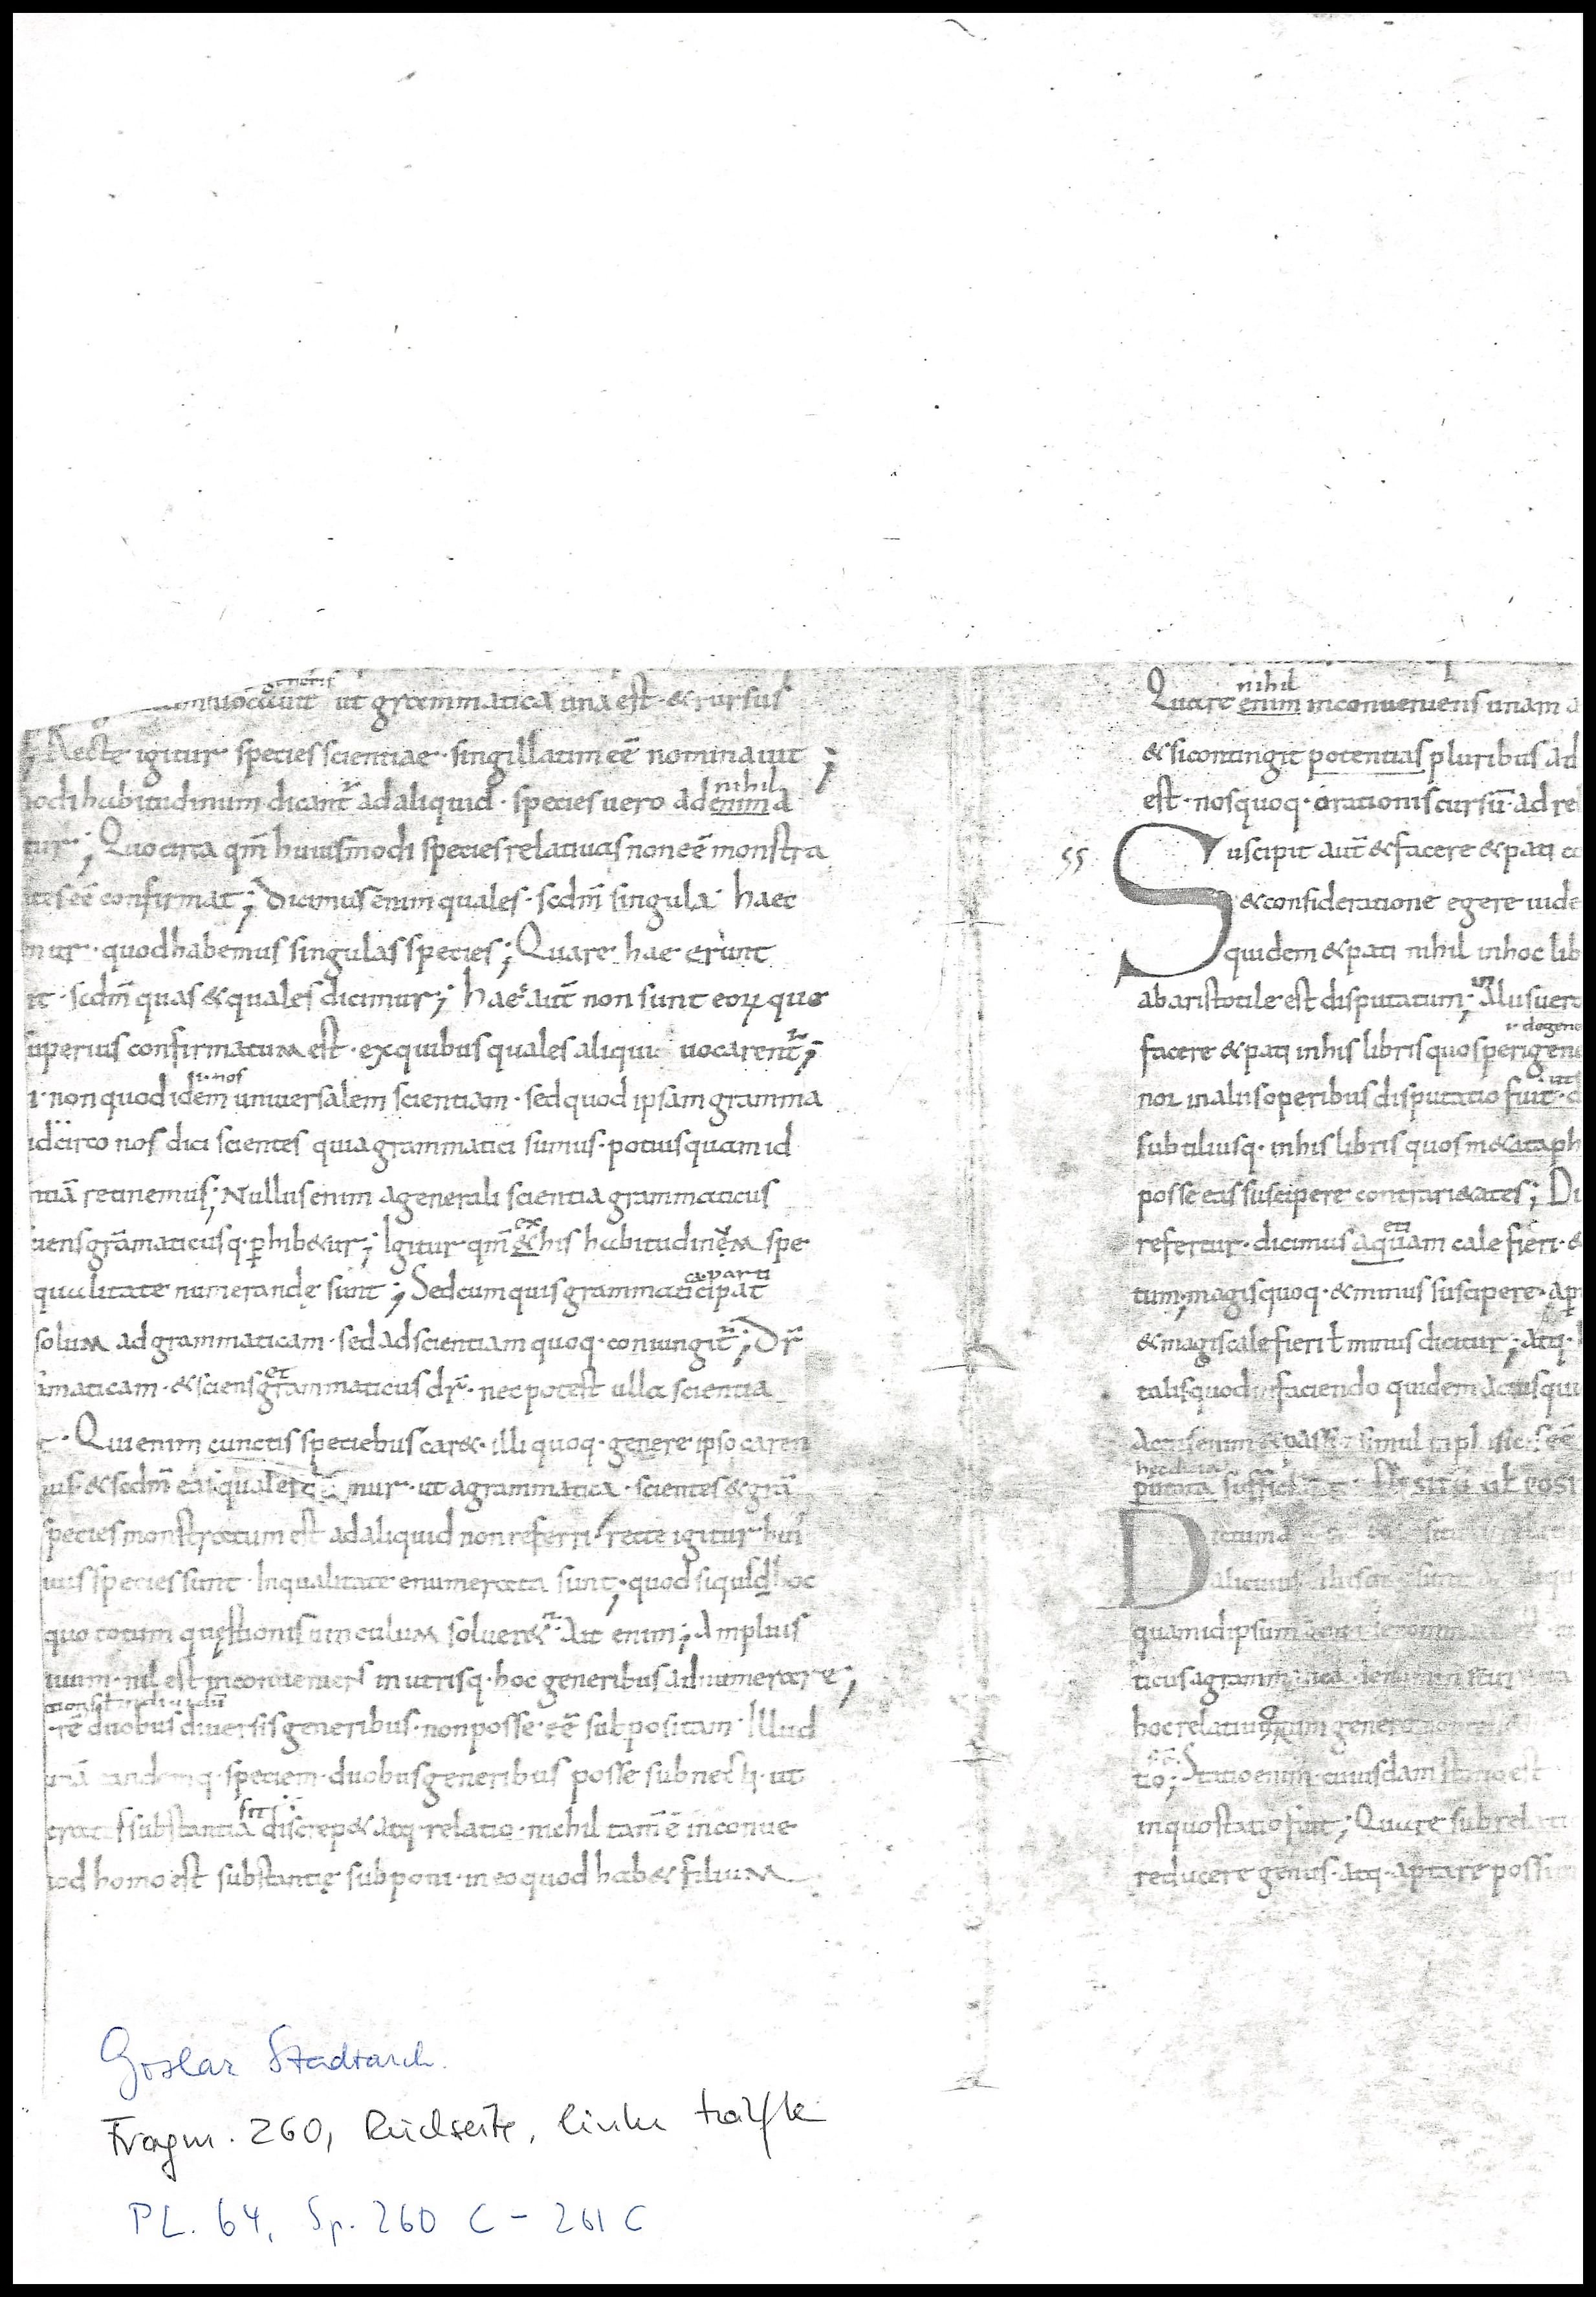 generis
uocauit ut grammatica una est · & rursus
; Recte igitur species scientiae · singillatim eē nominauit ;
nihil
odi habitudinum dicant᷑ ad aliquid · species uero ad enim a
tur ; Quo circa qm̄ huiusmodi species relatiuas non eē monstra
eē confirmat ; Dicimus enim quales · scdm̄ singula haec
mur · quod habemus singulas species ; Quare hae erunt
t · scdm̄ quas & quales dicimur ; hae aut̄ non sunt eoꝝ quę
superius confirmatum est · ex quibus quales aliqui uocarent᷑ ;
nos
non quod idem uniuersalem scientiam · sed quod ipsam gramma
idcirco nos dici scientes quia grammatici sumus · potius quam id
ntiā retinemus ; Nullus enim a generali scientia grammaticus
ex
iens grāmaticusq· ꝑhib&ur ; Igitur qm̄ & his habitudinem spe
caparti
qualitate numerandę sunt ; Sed cum quis grammaticipat
solum ad grammaticam · sed ad scientiam quoq· coniungit᷑ ; Dr̄
et
maticam · & sciens grammaticus dr̄ · nec potest ulla scientia
· Qui enim cunctis speciebus car& · illi quoq· genere ipso caren
ius · & scdm̄ ea quales mur · ut a grammatica · scientes & grā
species monstratum est ad aliquid non referri recte igitur hui
ius species sunt · In qualitate enumerata sunt ; quod siquid hoc
quo totum quęstionis uinculum soluer& · Ait enim ; Amplius
uum · nil est inconueniens in utrisq· hoc generibus adnumerare ;
rē duobus diuersis generibus · non posse · eē subpositam · Illud
unā eandemq· speciem · duobus generibus posse subnecti · ut
substantia discrep& atq· relatio · nichil tam̄ ē inconue
od homo est substantię subponi · in eo quod hab& filium
nihil
Quare enim inconueniens unam a
& si contingit potentias pluribus ad
est · nos quoq· orationis cursū · ad re
55 Suscipit aut̄ & facere & pati co
& consideratione egere uide
quidem & pati nihil in hoc lib
ab aristotile est disputatum ; Alius uero
de gene
facere & pati in his libris quos perigene
ut
nor in aliis operibus disputatio fuit · d
subtiliusq· in his libris quos m&aph
posse eas suscipere contrari&ates ; Du
refertur · dicimus aquam cale fieri · &
tum, magis quoq· & minus suscipere · aꝑ
& magis cale fieri ł minus dicitur ; atq·
talis quod in faciendo quidem actus qui
Actus enim & passio simul eē
putata sufficiant · De situ uł posi
Dictum
alicuius
quam id ipsum
ticus a grammatica · denomin
hoc relatiuorum genere
tio ; Statio enim · cuiusdam statio est
in quo statio fuit ; Quare sub relati
reducere genus · atq· aptare possi
Goslar Stadtarch.
Fragm. 260, Rückseite, linke Hälfte
PL. 64, Sp. 260 C - 261 C